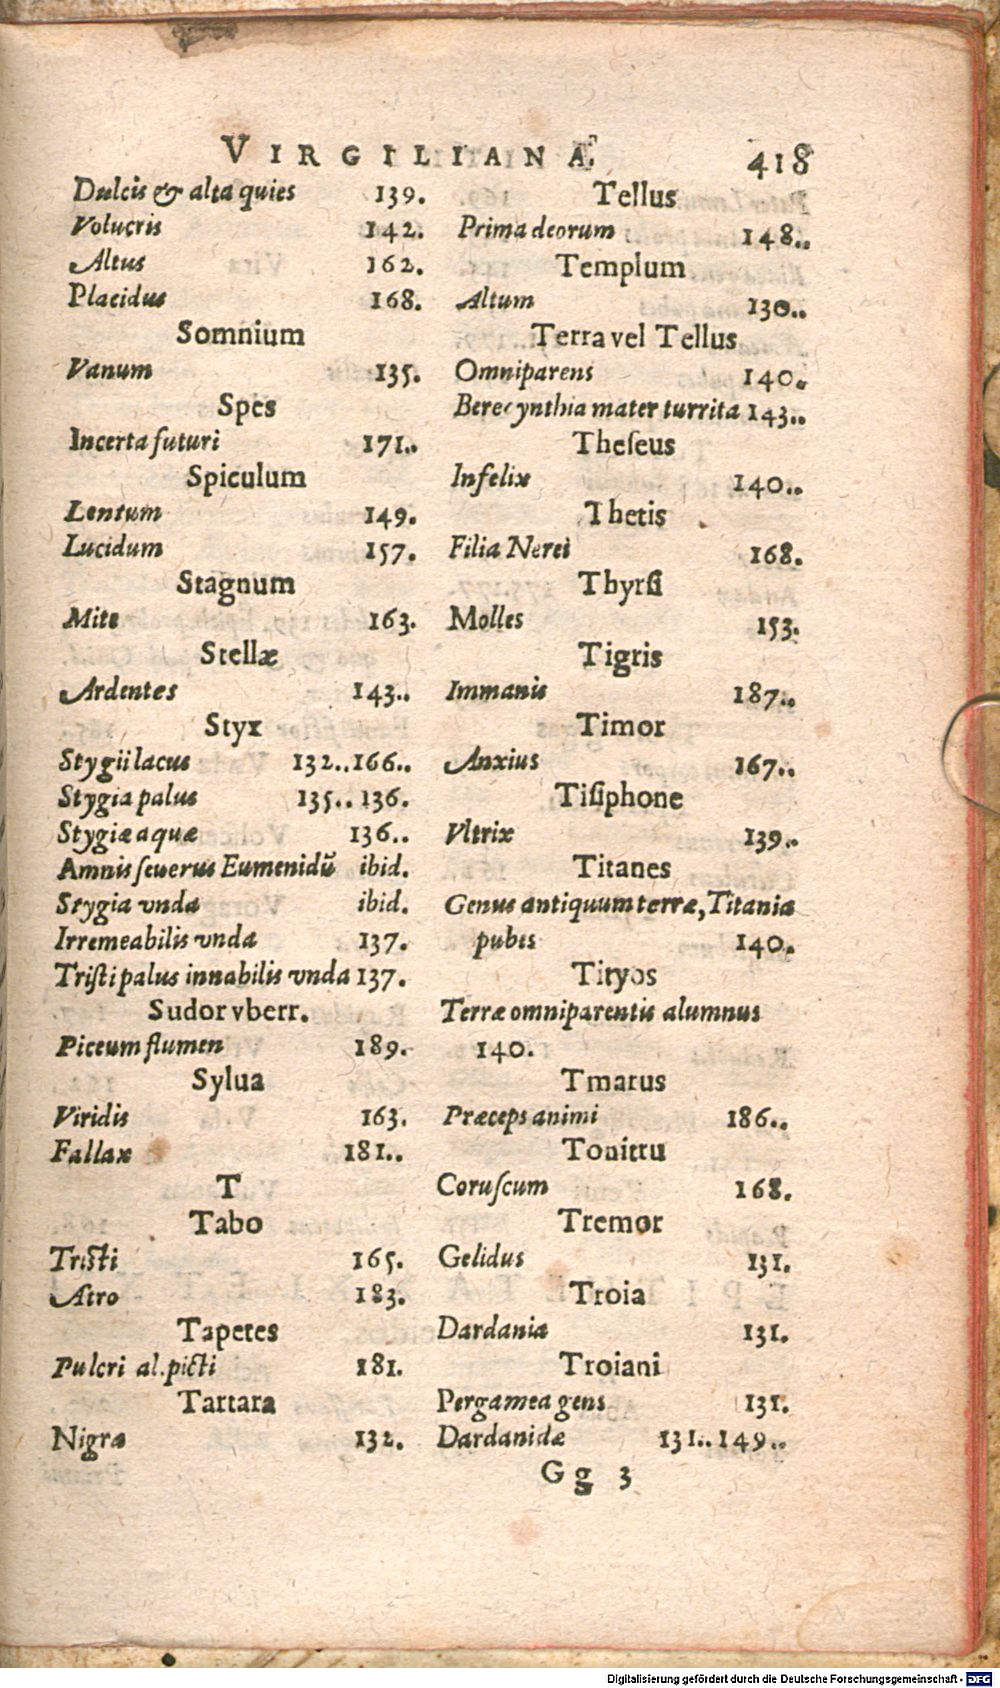 VIRGILIANÆ. 418
Dulcis & alta quies 139.
Volucris 142.
Altus 162.
Placidus 168.
Somnium
Vanum 135.
Spes
Incerta futuri 171..
Spiculum
Lentum 149.
Lucidum 157.
Stagnum
Mite 163.
Stellæ
Ardentes 143..
Styx
Stygii lacus 132..166..
Stygia palus 135.. 136.
Stygiæ aquæ 136..
Amnis ſeuerus Eumenidũ ibid.
Stygia vnda ibid.
Irremeabilis vnda 137.
Triſti palus innabilis vnda 137.
Sudor vberr.
Piceum flumen 189.
Sylua
Viridis 163.
Fallax 181..
T
Tabo
Triſti 165.
Atro 183.
Tapetes
Pulcri al.picti 181.
Tartara
Nigra 132.
Tellus
Prima deorum 148..
Templum
Altum 130..
Terra vel Tellus
Omniparens 140.
Berecynthia mater turrita 143..
Theſeus
Infelix 140..
Thetis
Filia Nerei 168.
Thyrſi
Molles 153.
Tigris
Immanis 187..
Timor
Anxius 167..
Tiſiphone
Vltrix 139..
Titanes
Genus antiquum terræ, Titania
pubes 140.
Tityos
Terræ omniparentis alumnus
140.
Tmarus
Præceps animi 186..
Tonitru
Coruſcum 168.
Tremor
Gelidus 131.
Troia
Dardania 131.
Troiani
Pergamea gens 131.
Dardanidæ 131..149..
Gg 3
Digitalisierung gefördert durch die Deutsche Forschungsgemeinschaft - DFG